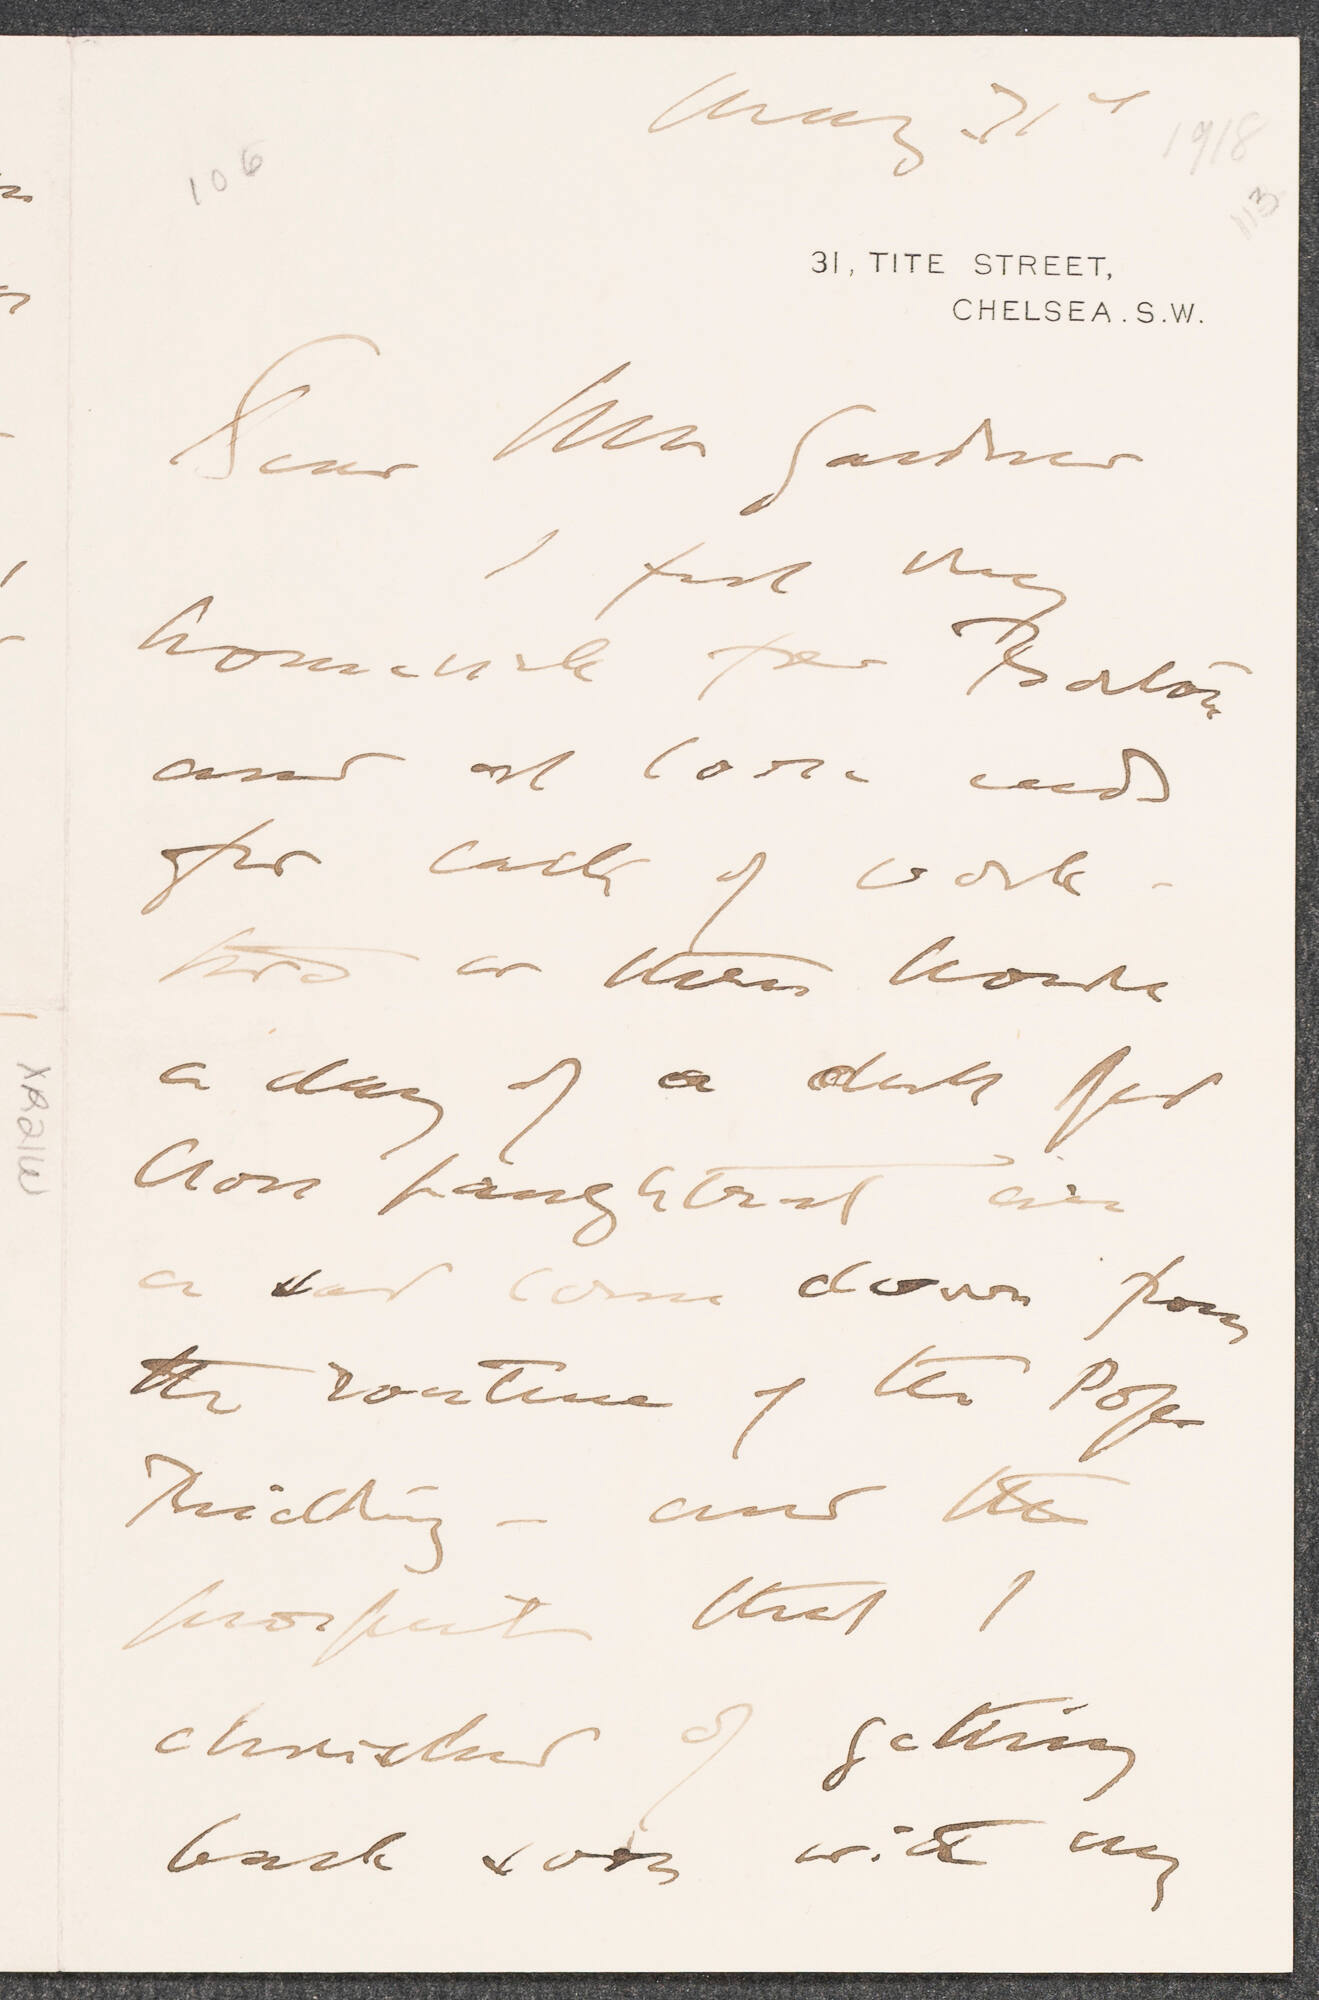 May 31st 1918
106
113
31, TITE STREET,
CHELSEA. S.W.
Dear Mrs Gardner
I feel very
homesick for Boston
and at loose ends
for lack of work -
two or three hours
a day of a dark fed
lion painted in
a sad come down from
the routine of the Pope
Building - and the
prospect that I
cherished of getting
back soon with my